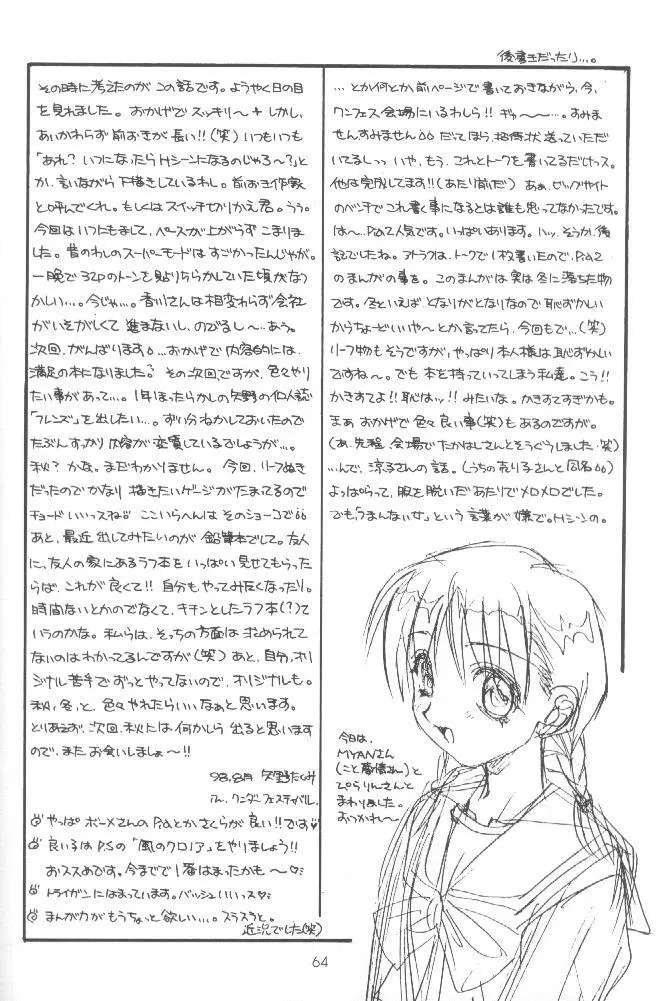 後書きだったり…。
… とか何とか、前ページで書いておきながら、今、
ワンフェス会場にいるわしら!! ギゅ〜〜…。すみま
せんすみません だってほう、招待状送っていただ
いてるしっっ いや、もう、これとトークを書いてるだけっス。
他は完成してます!!(あたり前だ) あぁ、ビッグサイト
のベンチでこれ書く事になるとは誰も思ってなかったです。
は〜、P.a2人気です。いっぱいあります。ハッ、そうか、後
記でしたね。アトラフは、トークで1枚書いたので、P.a2
のまんがの事を。このまんがは実は冬に落ちた物
です。冬といえば、となりがとなりなので恥ずかしい
からちょーどいいや〜とか言ってたら、今回もで…(笑)
リーフ物もそうですが、やっぱり本人様は恥ずかしい
ですね〜。でも本を持っていってしまう私達。こう!!
かきすてよ!!恥はッ!!みたいな。かきすてすぎかも。
まぁ おかげで色々良い事(笑)もあるのですが。
(あ、先程、会場でたかはしさんとそうぐうしました・笑)
…んで、涼子さんの話。(うちの売り子さんと同名)
よっぱらって、服を脱いだあたりでメロメロでした。
でも「つまんない女」という言葉が嫌で。Hシーンの。
その時に考えたのがこの話です。ようやく日の目
を見れました。おかげでスッキリ〜+ しかし、
あいかわらず前おきが長い!!(笑) いつもいつも
「あれ? いつになったらHシーンになるのじゃろ〜?」と
か、言いながら下描きしているわし。前おき作家
と呼んでくれ。もしくはスイッチせりかえ君。うう。
今回はいつにもまして、ペースが上がらずこまりま
した。昔のわしのスーパーモードはすごかったんじゃが。
一晩で32Pのトーンを貼りちらかしていた頃がなつ
かしい…。今じゃ…。香川さんは相変わらず会社
がいそがしくて進まないし、のびるし〜、あう。
次回、がんばります。…おかげで内容的には、
満足の本になりました。その次回ですが、色々やり
たい事があって…。1年ほったらかしの矢野の個人誌
「フレンズ」を出したい…。ずい分ねかしておいたので
たぶんすっかり内容が変質しているでしょうが…。
秋? かな。まだわかりません。今回、リーフぬき
だったのでかなり描きたいゲージがたまってるので
チョードいいっスね ここいらへんは そのショーコで
あと、最近出してみたいのが鉛筆本でして。友人
に、友人の家にあるラフ本をいっぱい見せてもらった
らば、これが良くて!! 自分もやってみたくなったり。
時間ないとかのでなくて、キチンとしたラフ本(?)て
いうのかな。私らは、そっちの方面は求められて
ないのはわかってるんですが(笑) あと、自分、オリ
ジナル苦手でずっとやってないので、オリジナルも。
秋、冬、と、色々やれたらいいなぁと思います。
とりあえず、次回、秋には何かしら出ると思います
ので、またお会いしましょ〜!!
98.8月 矢野たくみ
アt、ワンダーフェスティバル。
やっぱボーメさんのP.aとかさくらが良い!!です♥
良いろはP.Sの「風のクロノア」をやりましょう!!
おススメです。今までで1番はまったかも〜♡
トライガンにはまっています。バッシュいいっス♡
まんが力がもうちょっと欲しい…。スラスラと。
近況でした(笑)
今日は、
MYANさん
(こと夢情さん)と
ぴらりんさんと
まわりました。
おつかれ〜
64